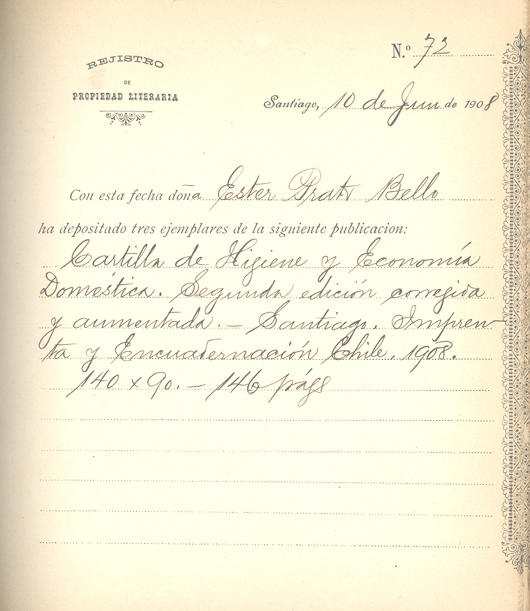 N.º 72
REJISTRO
DE
PROPIEDAD LITERARIA
Santiago, 10 de Jun de 1908
Con esta fecha doña Ester Prats Bello
ha depositado tres ejemplares de la siguiente publicacion:
Cartilla de Higiene y Economía
Doméstica. Segunda edición corregida
y aumentada. — Santiago. Impren-
ta y Encuadernación Chile. 1908.
140 x 90. — 146 págs